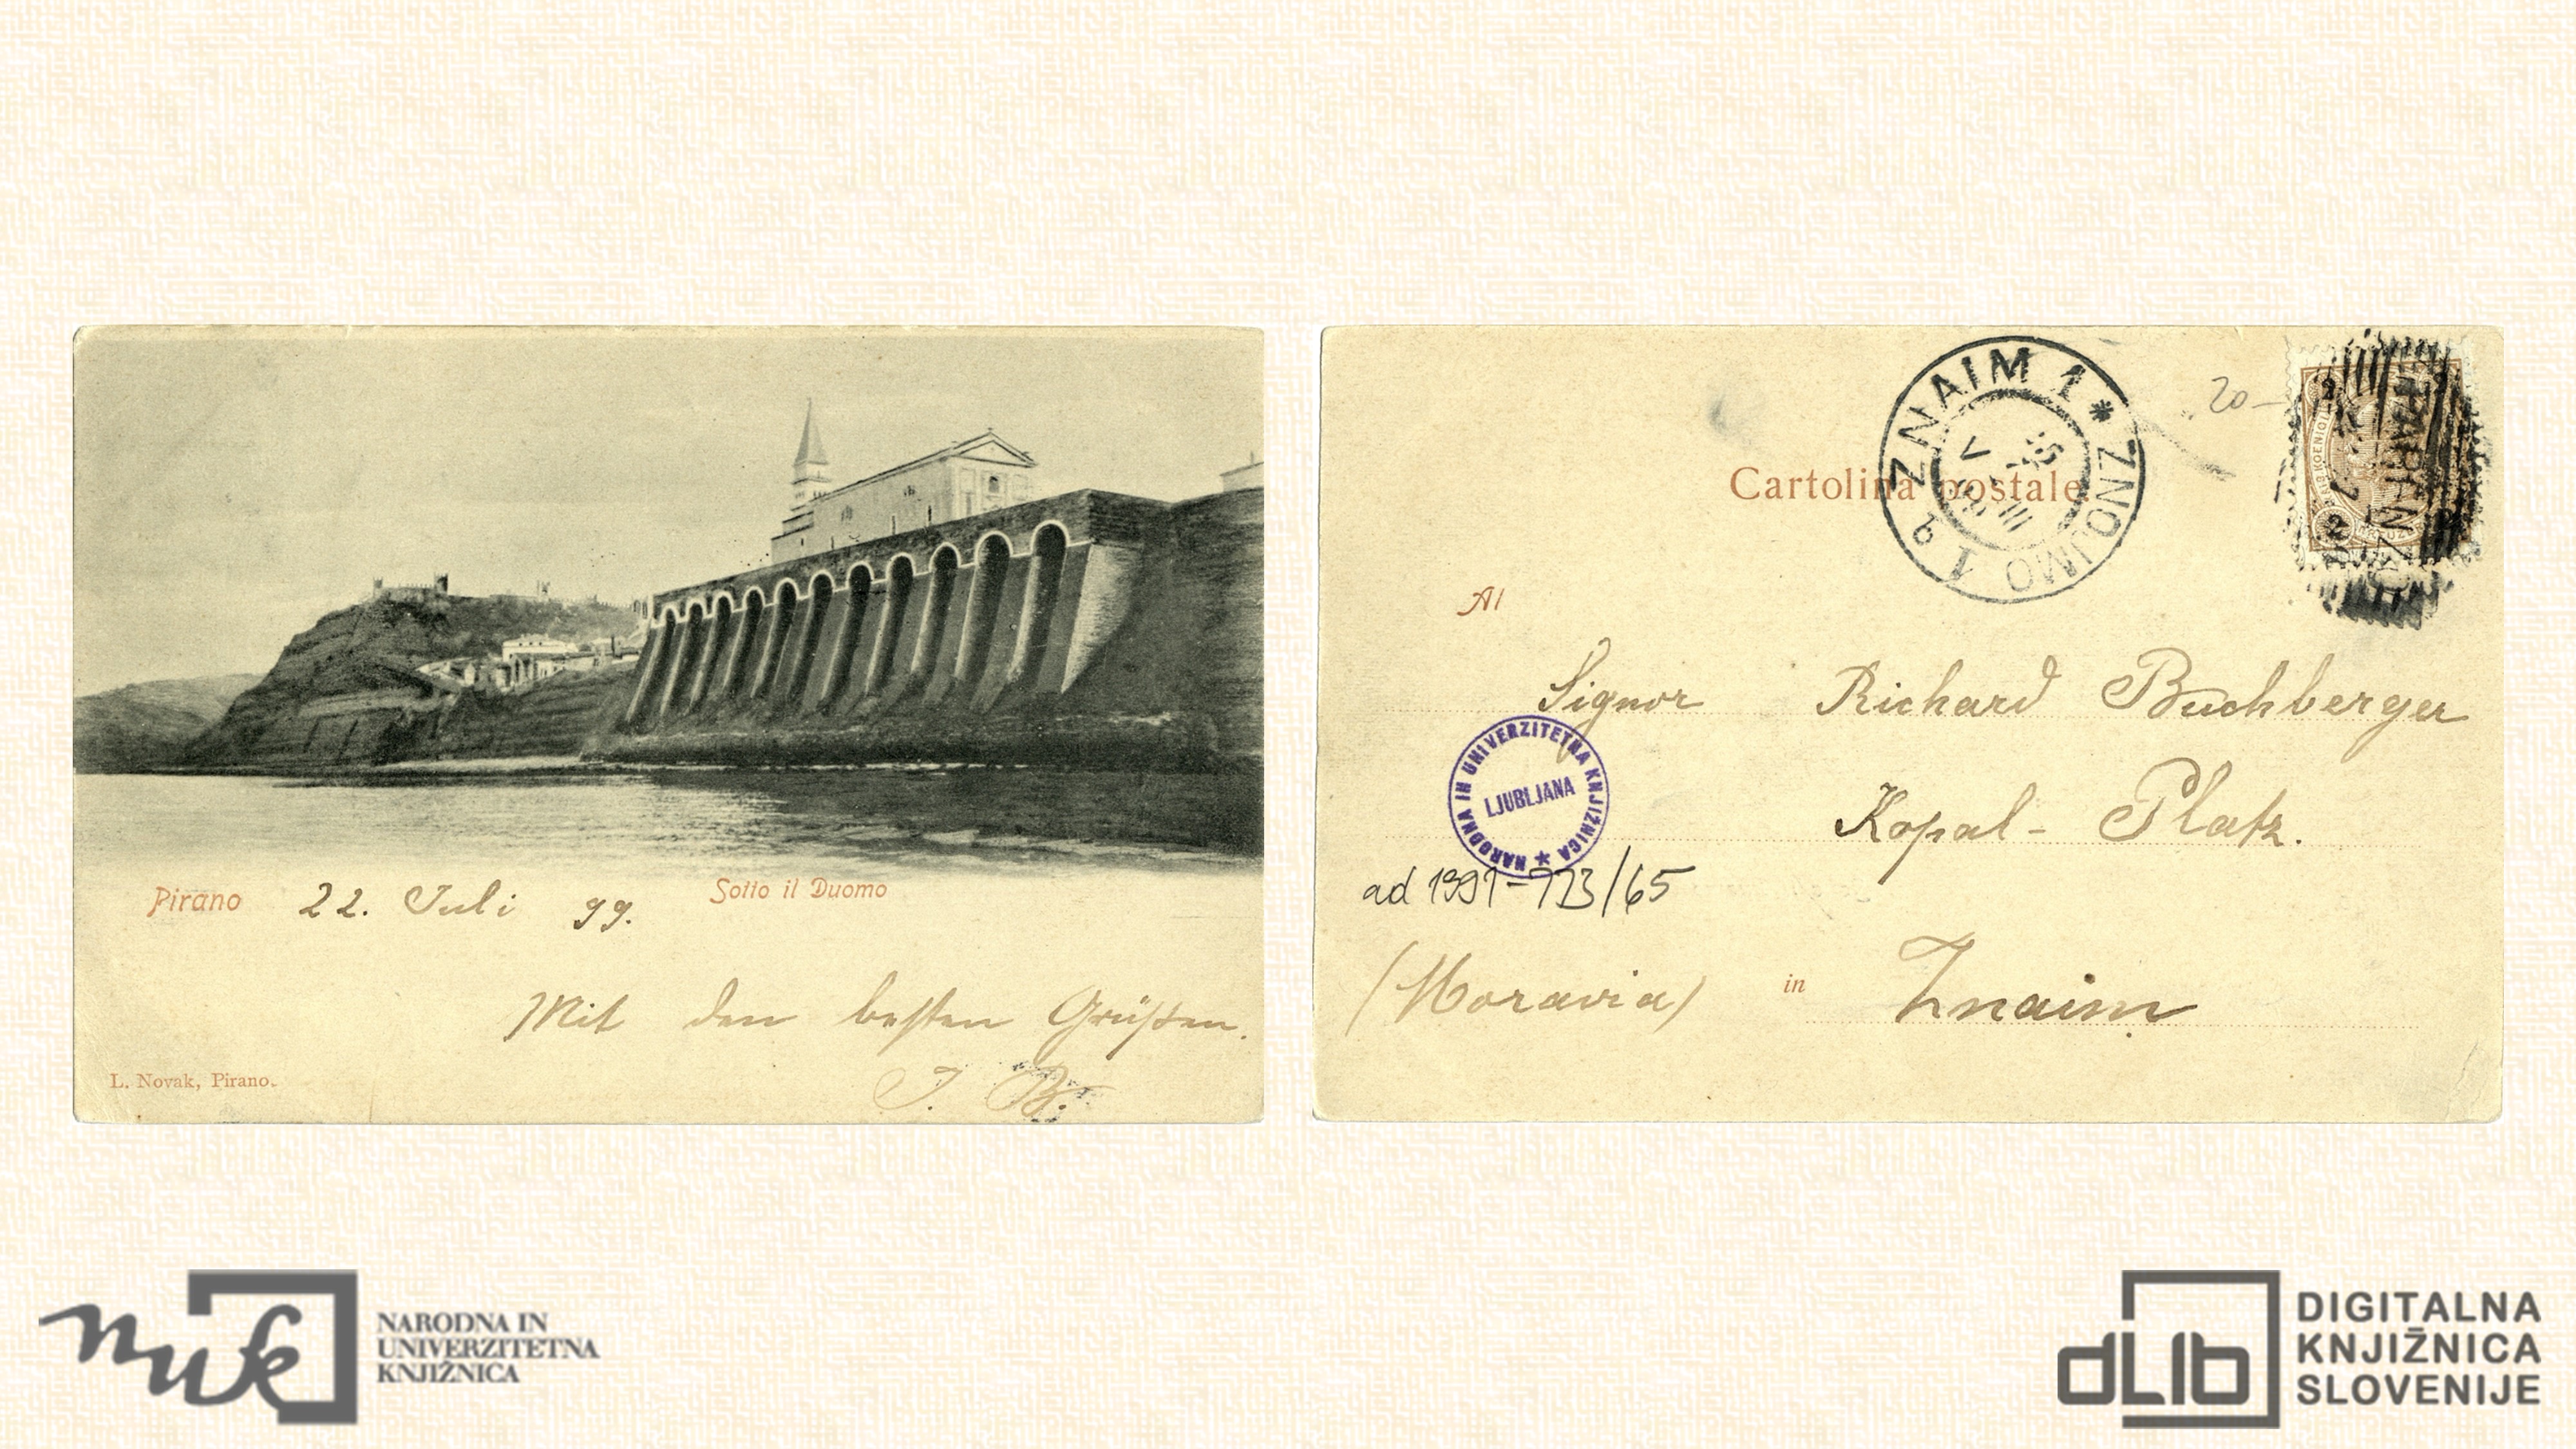 Pirano 22. Juli 99. Sotto il Duomo
Mit den besten Grüßen.
J. B.
L. Novak, Pirano.
ZNAIM 1 * ZNOJMO 1
20-
Cartolina postale.
PARENZO
Al
Signor Richard Buchberger
NARODNA IN UNIVERZITETNA KNJIŽNICA *
LJUBLJANA
Kopal-Platz.
ad 1991-713/65
(Moravia) in Znaim
nuk
NARODNA IN
UNIVERZITETNA
KNJIŽNICA
dLib
DIGITALNA
KNJIŽNICA
SLOVENIJE